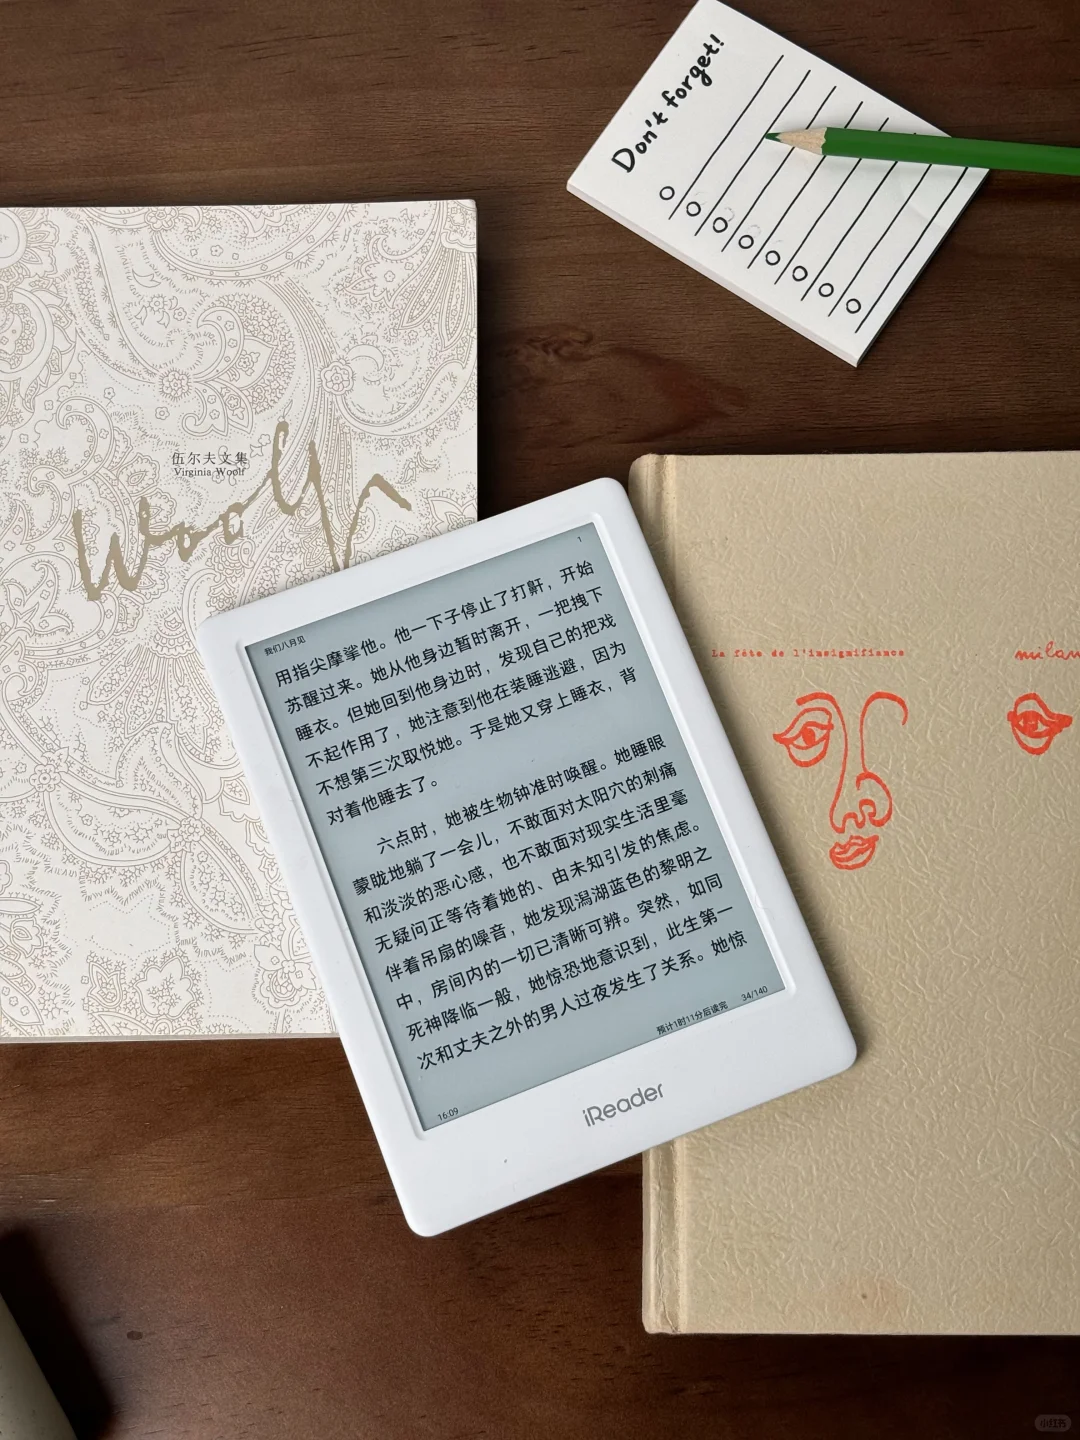 Don't forget!
伍尔夫文集
Virginia Woolf
Woolf
我们八月见
1
用指尖摩挲他。他一下子停止了打鼾，开始
苏醒过来。她从他身边暂时离开，一把拽下
睡衣。但她回到他身边时，发现自己的把戏
不起作用了，她注意到他在装睡逃避，因为
不想第三次取悦她。于是她又穿上睡衣，背
对着他睡去了。
六点时，她被生物钟准时唤醒。她睡眼
蒙眬地躺了一会儿，不敢面对太阳穴的刺痛
和淡淡的恶心感，也不敢面对现实生活里毫
无疑问正等待着她的、由未知引发的焦虑。
伴着吊扇的噪音，她发现潟湖蓝色的黎明之
中，房间内的一切已清晰可辨。突然，如同
死神降临一般，她惊恐地意识到，此生第一
次和丈夫之外的男人过夜发生了关系。她惊
16:09
预计1时11分后读完
34/140
iReader
La fête de l'insignifiance
milan
小红书